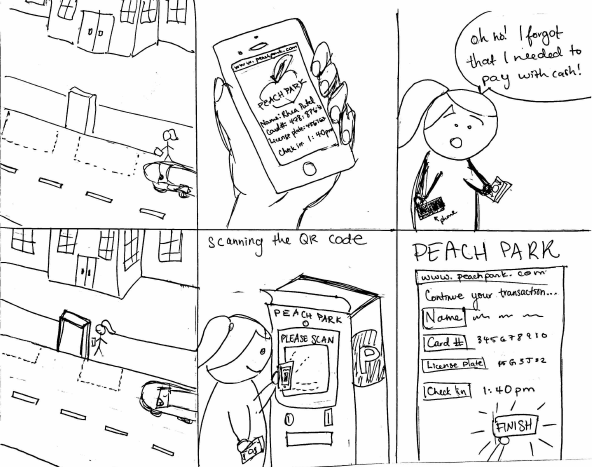 www.peachpark.com
PEACH PARK
Name: Rhea Patel
Card#:
License plate:
Check in 1:40pm
oh no! I forgot
that I needed to
pay with cash!
phone
Scanning the QR code
PEACH PARK
PLEASE SCAN
P
PEACH PARK
www.peachpark.com
Continue your transaction...
Name
Card # 345678910
License plate
Check in 1:40pm
FINISH